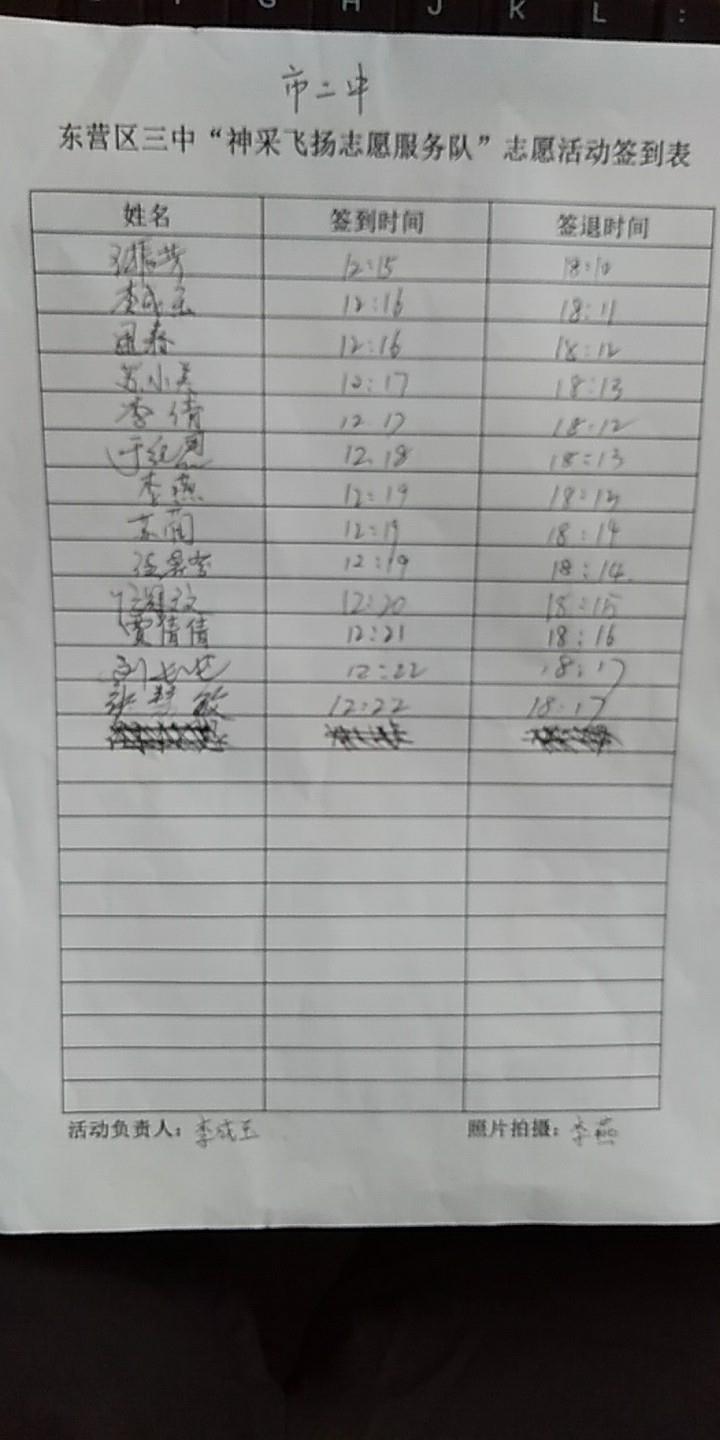 G H J K L :
市二中
东营区三中“神采飞扬志愿服务队”志愿活动签到表
姓名 签到时间 签退时间
张振芳 12:15 18:10
李成玉 12:16 18:11
12:16 18:12
苏小美 12:17 18:13
李倩 12.17 18:12
12.18 18:13
李燕 12:19 18:13
12:19 18:14
12:19 18:14
12:20 18:15
贾倩倩 12:21 18:16
12:22 18:17
张梦敏 12:22 18:17
活动负责人：李成玉 照片拍摄：李燕